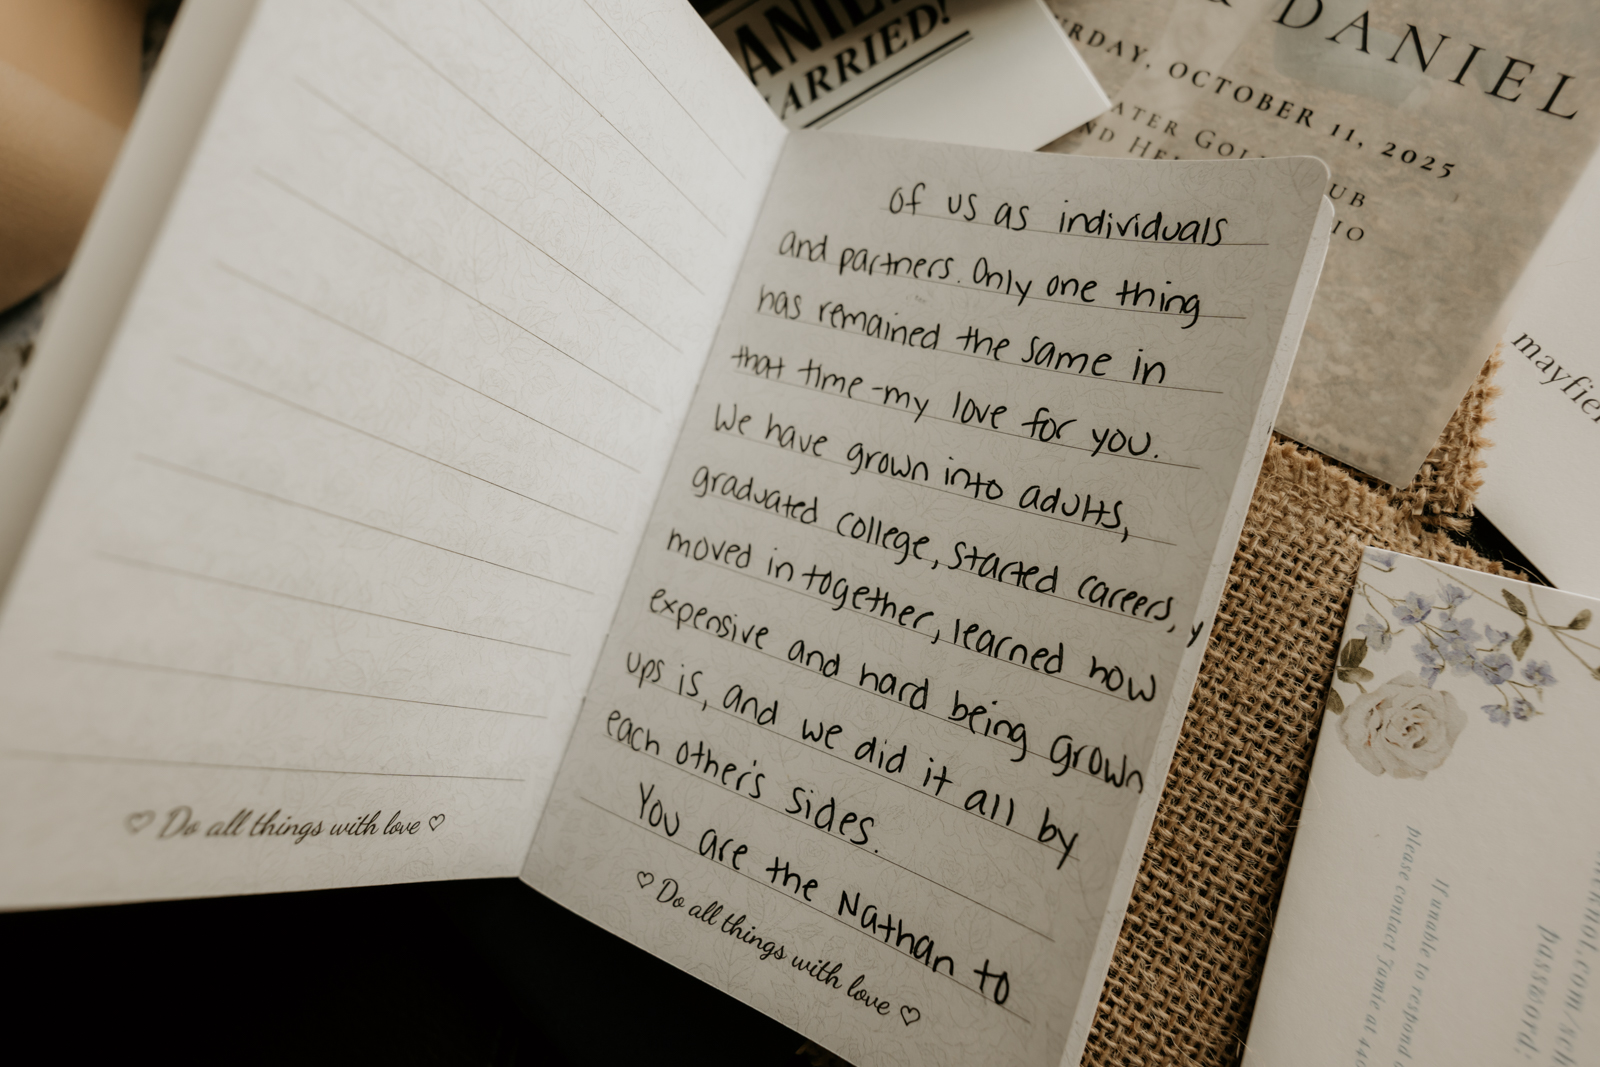 ARRIED!
DANIEL
OCTOBER 11, 2025
of us as individuals
and partners. Only one thing
has remained the same in
that time - my love for you.
We have grown into adults,
graduated college, started careers,
moved in together, learned how
expensive and hard being grown
ups is, and we did it all by
each other's sides.
You are the Nathan to
♡ Do all things with love ♡
♡ Do all things with love ♡
If unable to respond
please contact Jamie at
password: